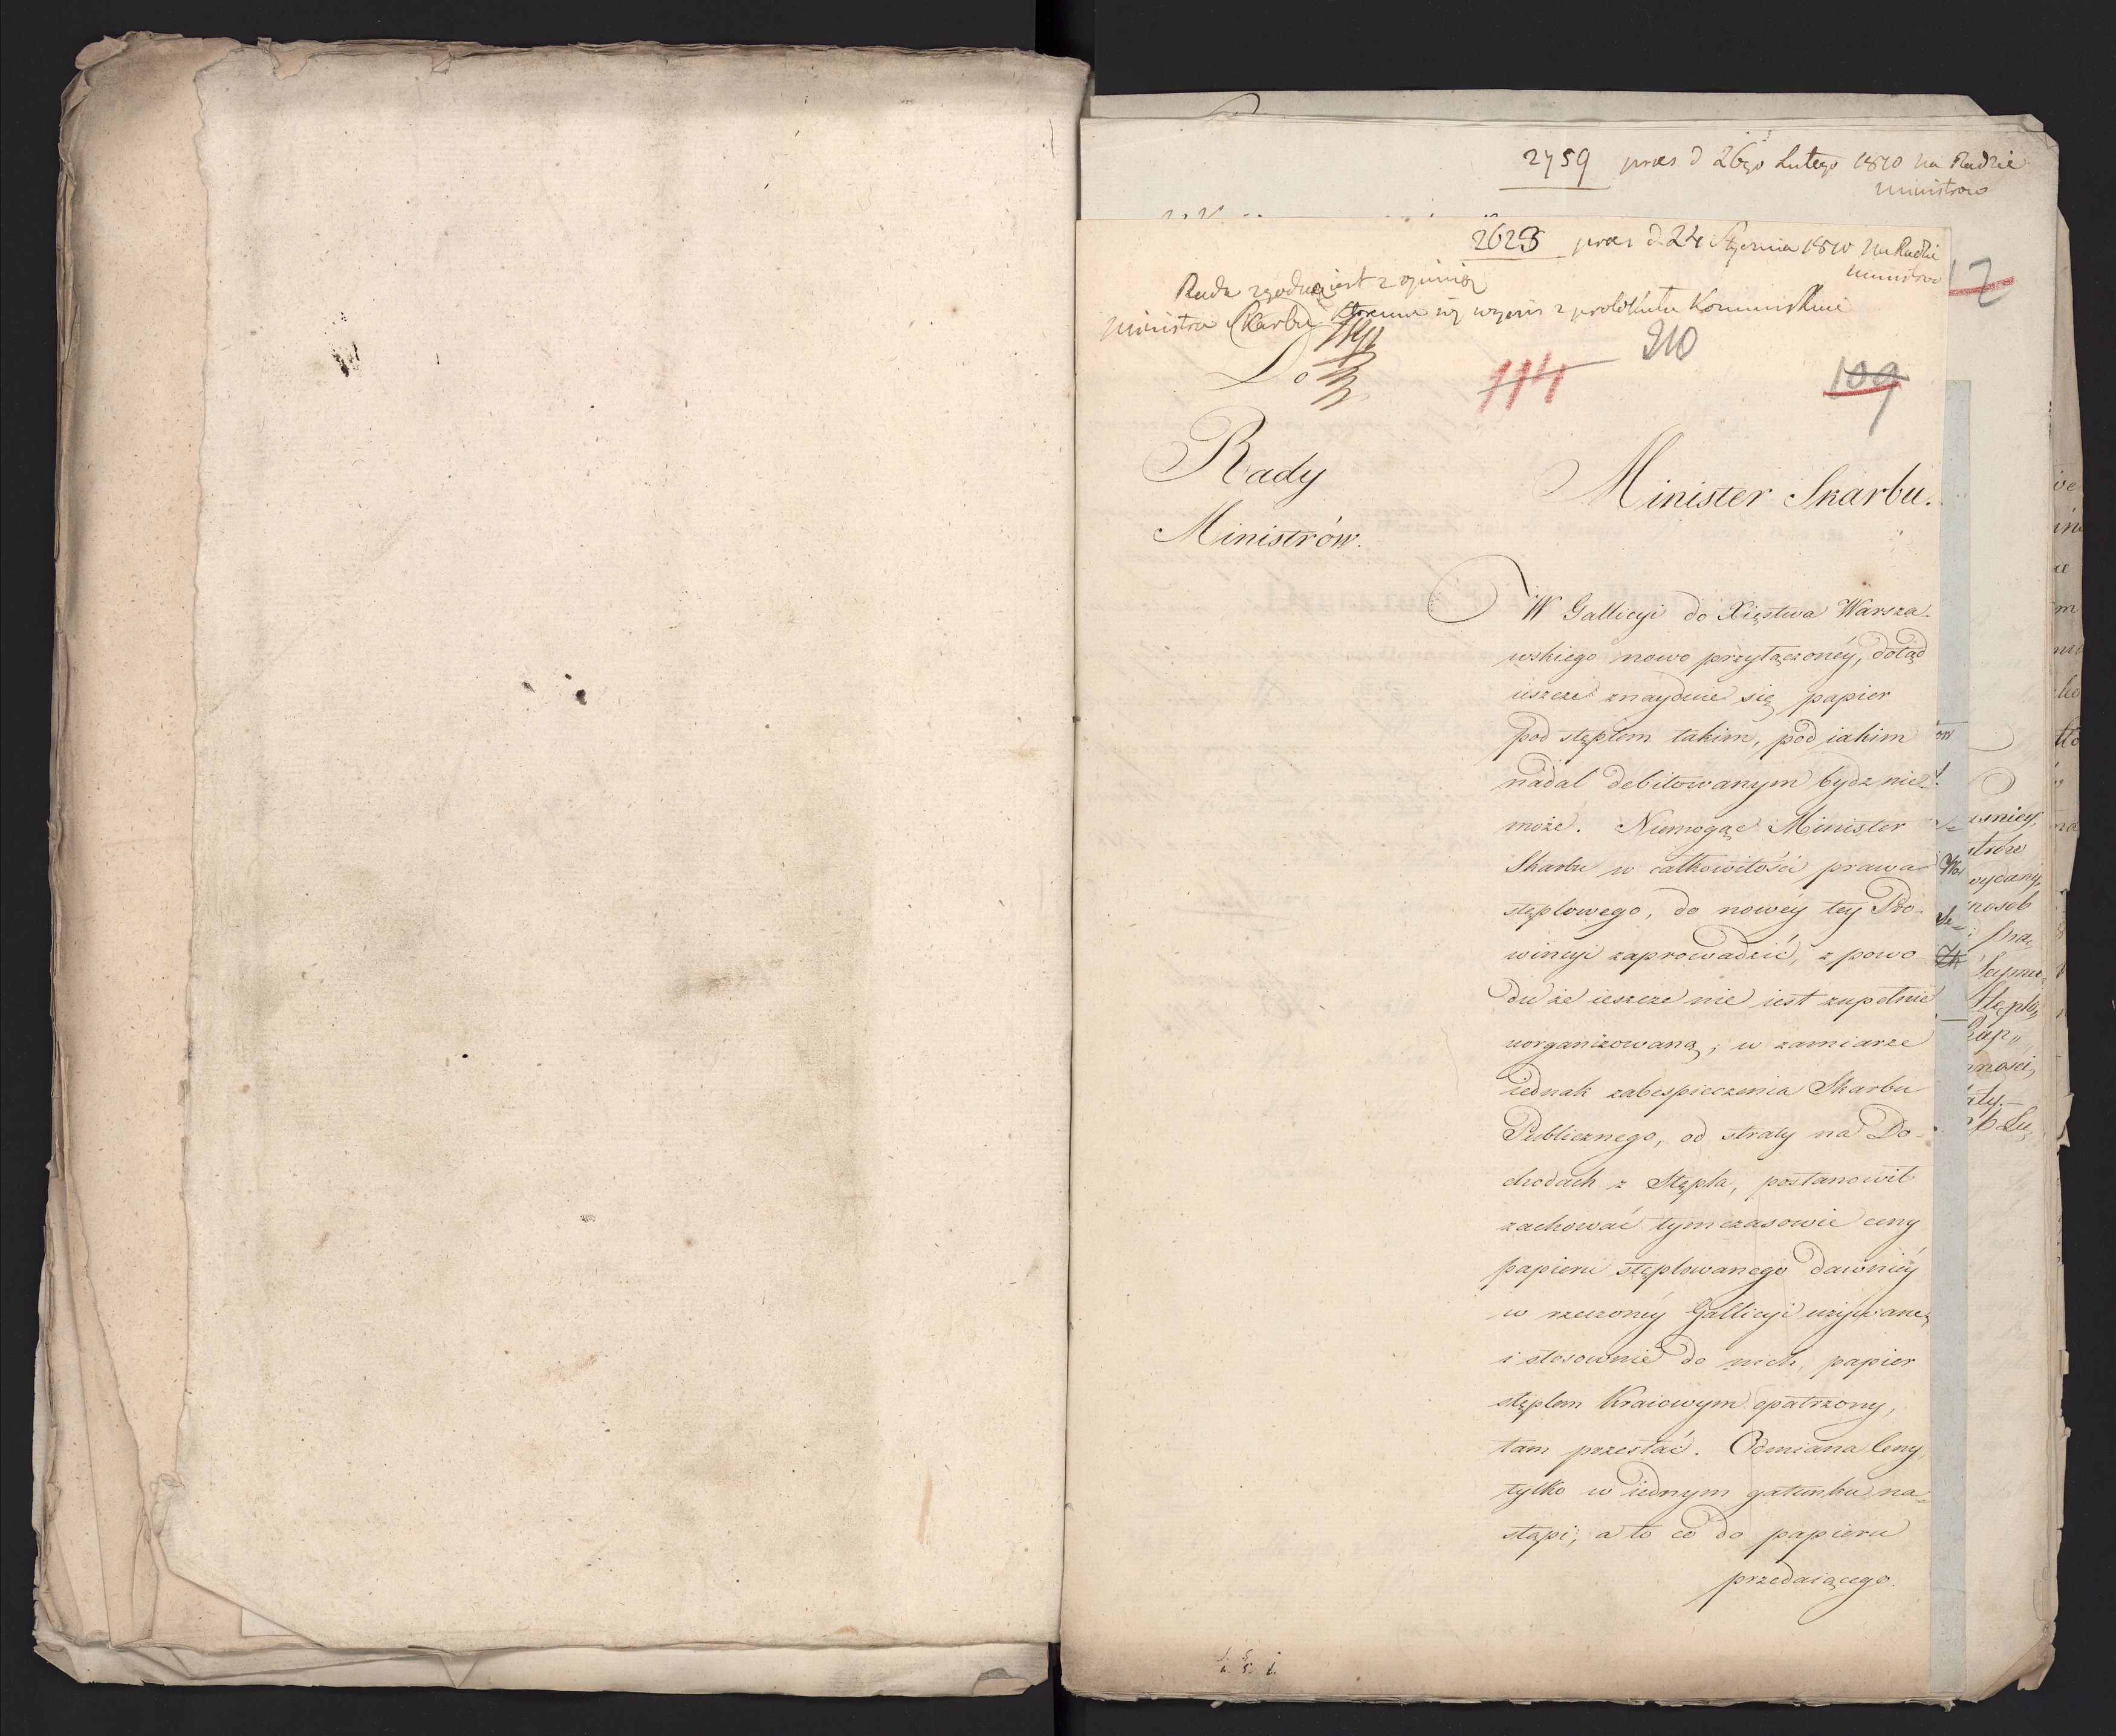 2759 praes d 26go Lutego 1810 na Radzie
Ministrow
2623 praes d. 24 Stycznia 1810 Na Radzie
Ministrow
12
Rada zgodna iest z opinią
Ministra Skarbu któremu się wypis z protokułu Kommunikuie
910
114
109
Do
Rady
Ministrów.
Minister Skarbu.
W Gallicyi do Xięstwa Warsza-
wskiego nowo przyłączonéy, dotąd
ieszcze znayduie się papier
pod stęplem takim, pod iakim
nadal debitowanym bydz nie-
może. Niemogąc Minister
Skarbu w całkowitości prawa
stęplowego, do nowéy téy Pro-
wincyi zaprowadzić, z powo-
du że ieszcze nie iest zupełnie
uorganizowaną, w zamiarze
iednak zabespieczenia Skarbu
Publicznego, od straty na Do-
chodach z Stępla, postanowił
zachować tymczasowie ceny
papieru stęplowanego dawniéy
w rzeczonéy Gallicyi używane,
i stosownie do nich, papier
stęplem Kraiowym opatrzony,
tam przesłać. Odmiana Ceny
tylko w iednym gatunku na-
stąpi, a to co do papieru
przedaiącego.
usniey,
strów
wydany,
posob
Stęplo,
nności,